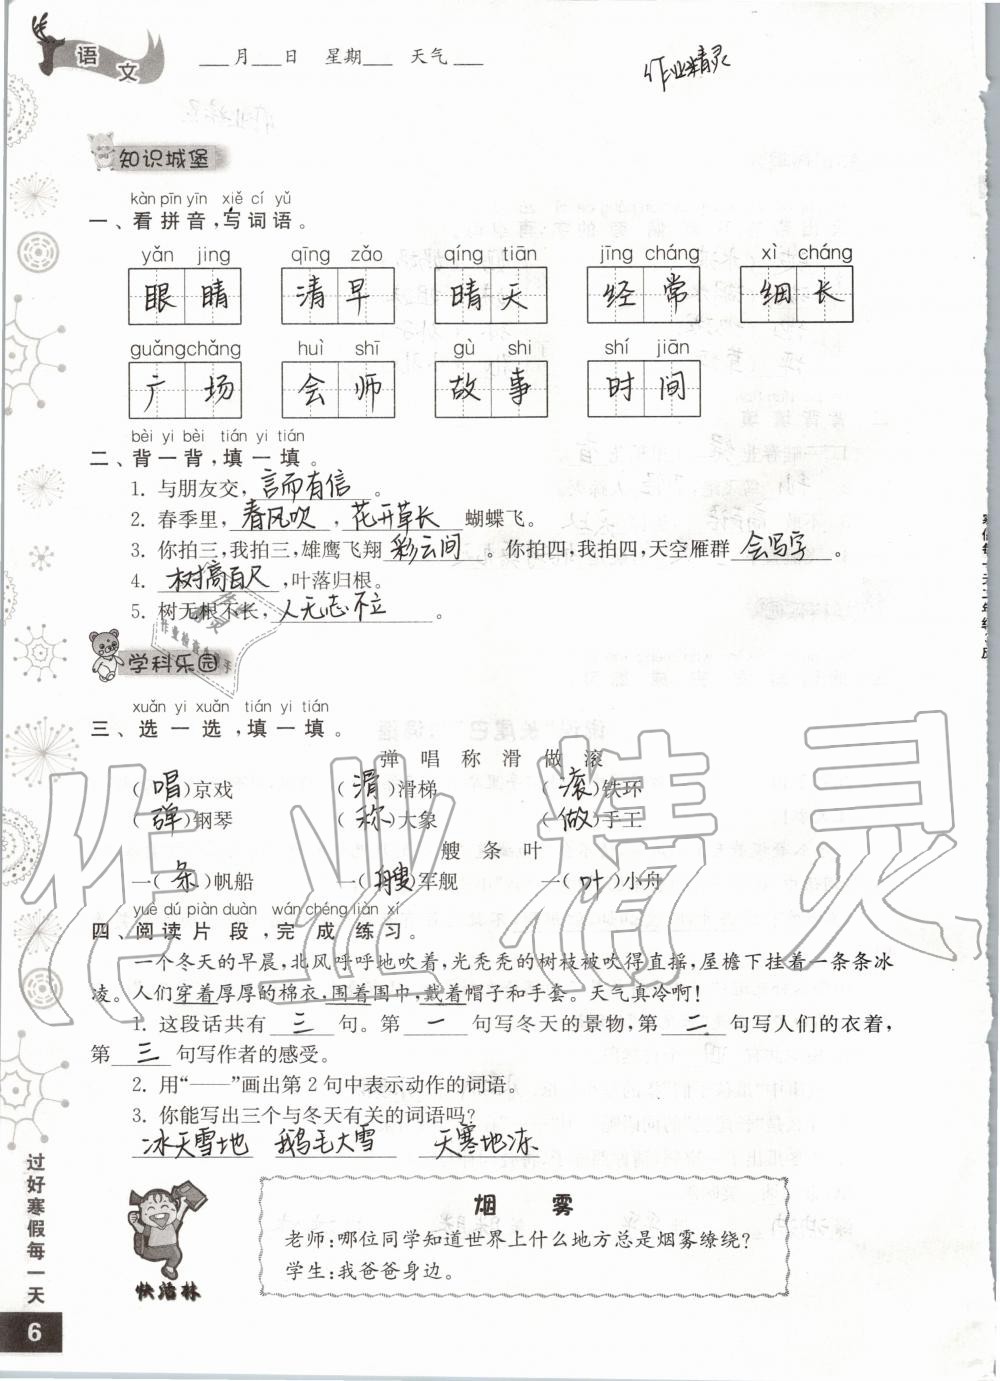 语文
___月___日 星期___ 天气___ 作业精灵
知识城堡
kàn pīn yīn xiě cí yǔ
一、看拼音,写词语。
yǎn jing qīng zǎo qíng tiān jīng cháng xì cháng
眼睛 清早 晴天 经常 细长
guǎngchǎng huì shī gù shi shí jiān
广场 会师 故事 时间
bèi yi bèi tián yi tián
二、背一背,填一填。
1. 与朋友交,言而有信。
2. 春季里,春风吹,花开草长蝴蝶飞。
3. 你拍三,我拍三,雄鹰飞翔彩云间。你拍四,我拍四,天空雁群会写字。
4. 树搞百尺,叶落归根。
5. 树无根不长,人无志不立。
学科乐园
xuǎn yi xuǎn tián yi tián
三、选一选,填一填。
弹 唱 称 滑 做 滚
(唱)京戏 (滑)滑梯 (滚)铁环
(弹)钢琴 (称)大象 (做)手工
艘 条 叶
一(条)帆船 一(艘)军舰 一(叶)小舟
yuè dú piàn duàn wán chéng liàn xí
四、阅读片段,完成练习。
一个冬天的早晨,北风呼呼地吹着,光秃秃的树枝被吹得直摇,屋檐下挂着一条条冰
凌。人们穿着厚厚的棉衣,围着围巾,戴着帽子和手套。天气真冷啊!
1. 这段话共有 三 句。第 一 句写冬天的景物,第 二 句写人们的衣着,
第 三 句写作者的感受。
2. 用“——”画出第 2 句中表示动作的词语。
3. 你能写出三个与冬天有关的词语吗?
冰天雪地 鹅毛大雪 天寒地冻
烟 雾
老师:哪位同学知道世界上什么地方总是烟雾缭绕?
学生:我爸爸身边。
快活林
过好寒假每一天
6
作业精灵